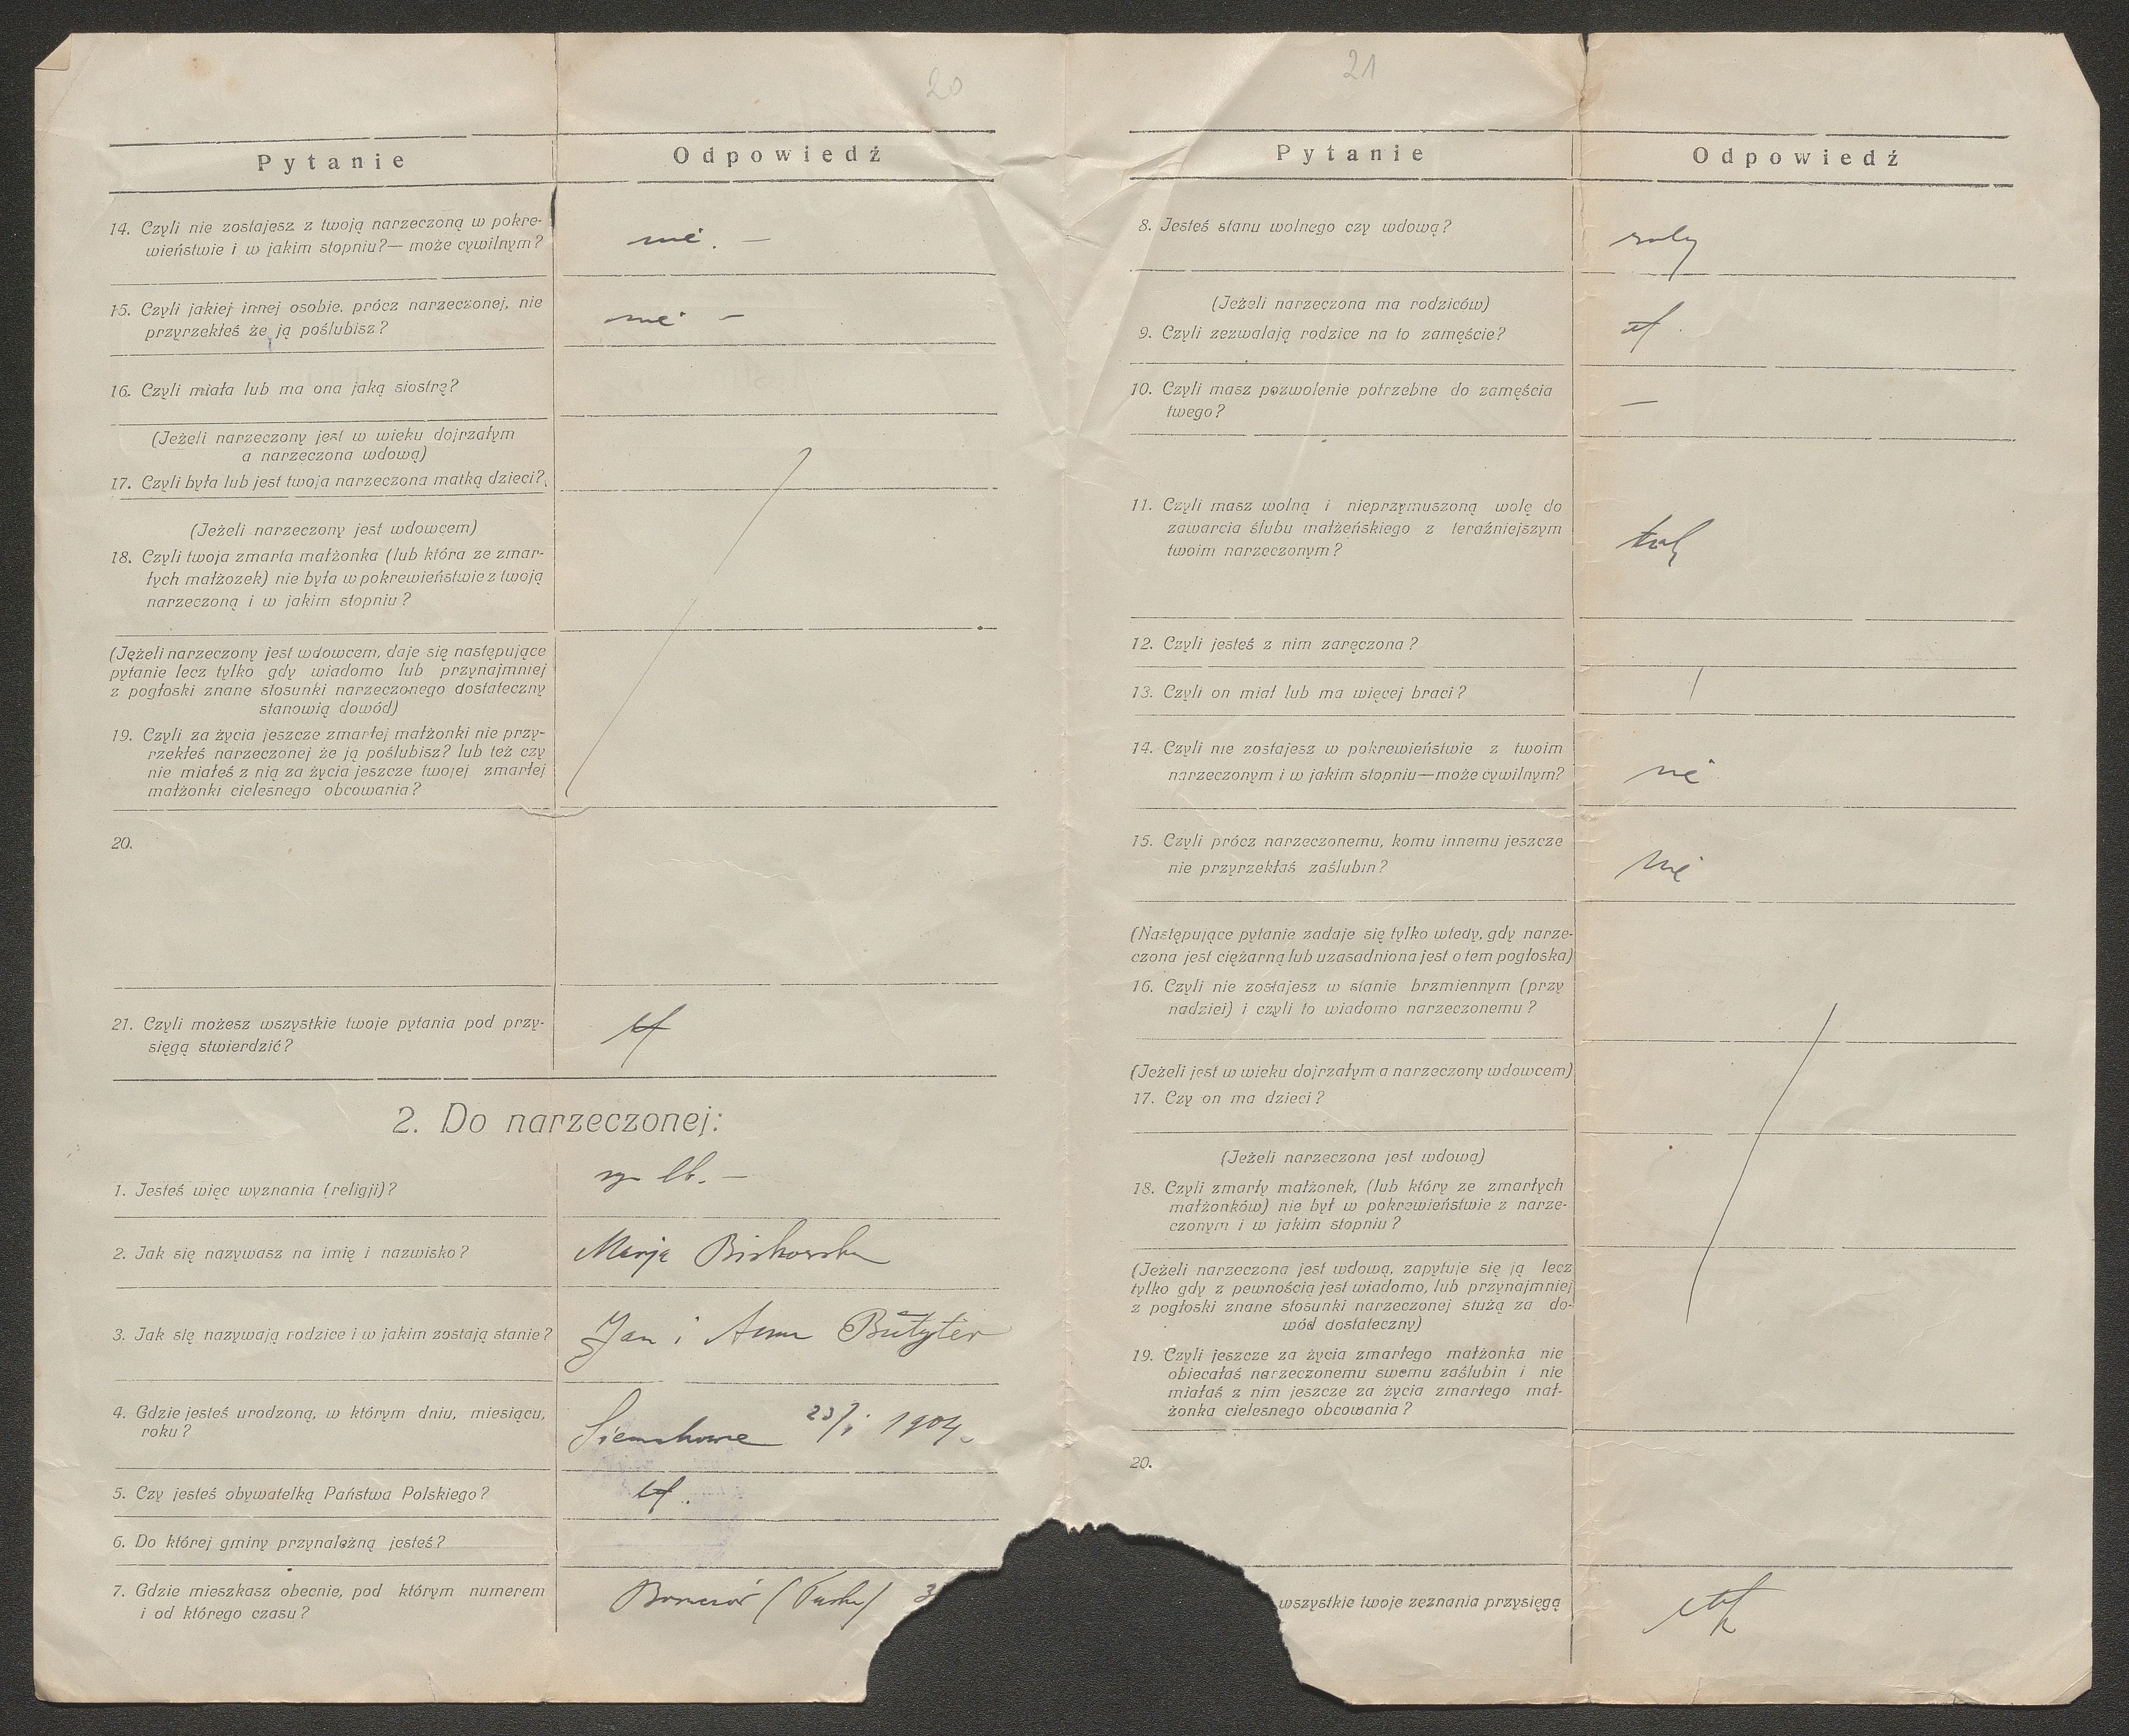 20
Pytanie
Odpowiedź
14. Czyli nie zostajesz z twoją narzeczoną w pokre-
wieństwie i w jakim stopniu?— może cywilnym?
nie. —
15. Czyli jakiej innej osobie, prócz narzeczonej, nie
przyrzekłeś że ją poślubisz?
nie —
16. Czyli miała lub ma ona jaką siostrę?
(Jeżeli narzeczony jest w wieku dojrzałym
a narzeczona wdową)
17. Czyli była lub jest twoja narzeczona matką dzieci?
(Jeżeli narzeczony jest wdowcem)
18. Czyli twoja zmarła małżonka (lub która ze zmar-
łych małżozek) nie była w pokrewieństwie z twoją
narzeczoną i w jakim stopniu?
(Jeżeli narzeczony jest wdowcem, daje się następujące
pytanie lecz tylko gdy wiadomo lub przynajmniej
z pogłoski znane stosunki narzeczonego dostateczny
stanowią dowód)
19. Czyli za życia jeszcze zmarłej małżonki nie przy-
rzekłeś narzeczonej że ją poślubisz? lub też czy
nie miałeś z nią za życia jeszcze twojej zmarłej
małżonki cielesnego obcowania?
20.
21. Czyli możesz wszystkie twoje pytania pod przy-
sięgą stwierdzić?
2. Do narzeczonej:
1. Jesteś więc wyznania (religji)?
2. Jak się nazywasz na imię i nazwisko?
Marja
3. Jak się nazywają rodzice i w jakim zostają stanie?
Jan i Anna
4. Gdzie jesteś urodzoną, w którym dniu, miesiącu,
roku?
1904
5. Czy jesteś obywatelką Państwa Polskiego?
6. Do której gminy przynależną jesteś?
7. Gdzie mieszkasz obecnie, pod którym numerem
i od którego czasu?
21
Pytanie
Odpowiedź
8. Jesteś stanu wolnego czy wdową?
(Jeżeli narzeczona ma rodziców)
9. Czyli zezwalają rodzice na to zamęście?
10. Czyli masz pozwolenie potrzebne do zamęścia
twego?
—
11. Czyli masz wolną i nieprzymuszoną wolę do
zawarcia ślubu małżeńskiego z teraźniejszym
twoim narzeczonym?
tak
12. Czyli jesteś z nim zaręczona?
13. Czyli on miał lub ma więcej braci?
14. Czyli nie zostajesz w pokrewieństwie z twoim
narzeczonym i w jakim stopniu—może cywilnym?
nie
15. Czyli prócz narzeczonemu, komu innemu jeszcze
nie przyrzekłaś zaślubin?
nie
(Następujące pytanie zadaje się tylko wtedy, gdy narze-
czona jest ciężarną lub uzasadniona jest o tem pogłoska)
16. Czyli nie zostajesz w stanie brzmiennym (przy
nadziei) i czyli to wiadomo narzeczonemu?
(Jeżeli jest w wieku dojrzałym a narzeczony wdowcem)
17. Czy on ma dzieci?
(Jeżeli narzeczona jest wdową)
18. Czyli zmarły małżonek, (lub który ze zmarłych
małżonków) nie był w pokrewieństwie z narze-
czonym i w jakim stopniu?
(Jeżeli narzeczona jest wdową, zapytuje się ją lecz
tylko gdy z pewnością jest wiadomo, lub przynajmniej
z pogłoski znane stosunki narzeczonej służą za do-
wód dostateczny)
19. Czyli jeszcze za życia zmarłego małżonka nie
obiecałaś narzeczonemu swemu zaślubin i nie
miałaś z nim jeszcze za życia zmarłego mał-
żonka cielesnego obcowania?
20.
wszystkie twoje zeznania przysięgą